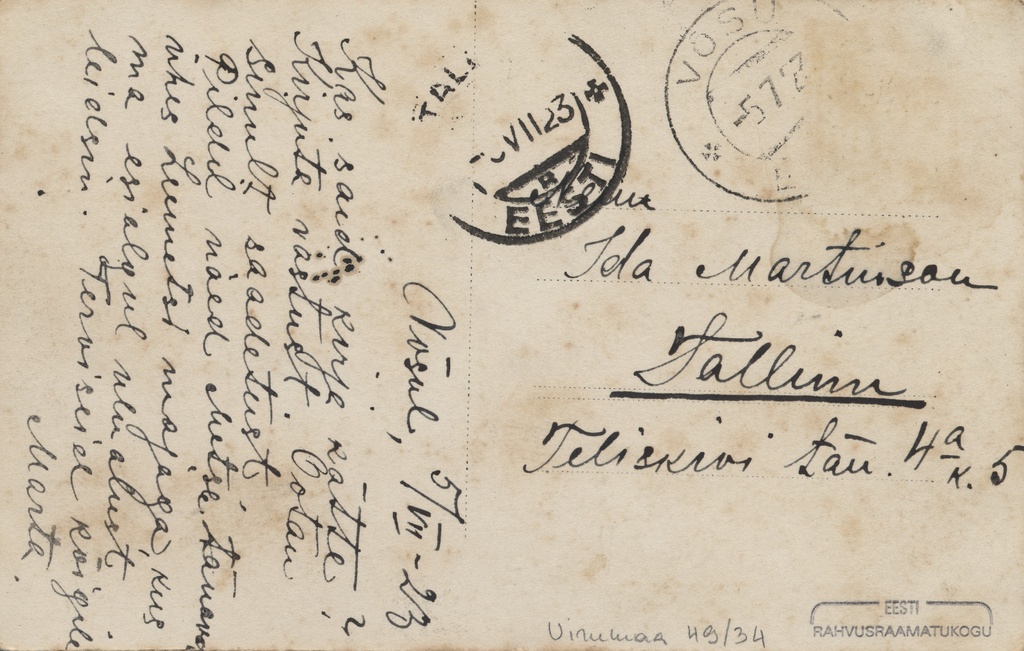 Võsul, 5/VII-23
Kas said kirja kätte?
Kirjuta vastust. Ootan
sinult saadetust.
Pildil näed Metsa tänava
ühes Lemmetsi majaga, kus
ma esialgul ulualust
leidsin. Terviseid kõigile
Marta.
TAL
VII 23
B
EESTI
VÕSU
-5.7.2
Ida Martinson
Tallinn
Teliskivi tän. 4a
k. 5
Virumaa 49/34
EESTI
RAHVUSRAAMATUKOGU